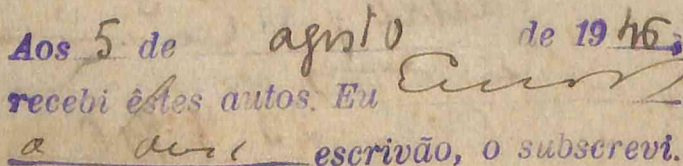 Aos 5 de agosto de 1946,
recebi êstes autos. Eu
escrivão, o subscrevi.